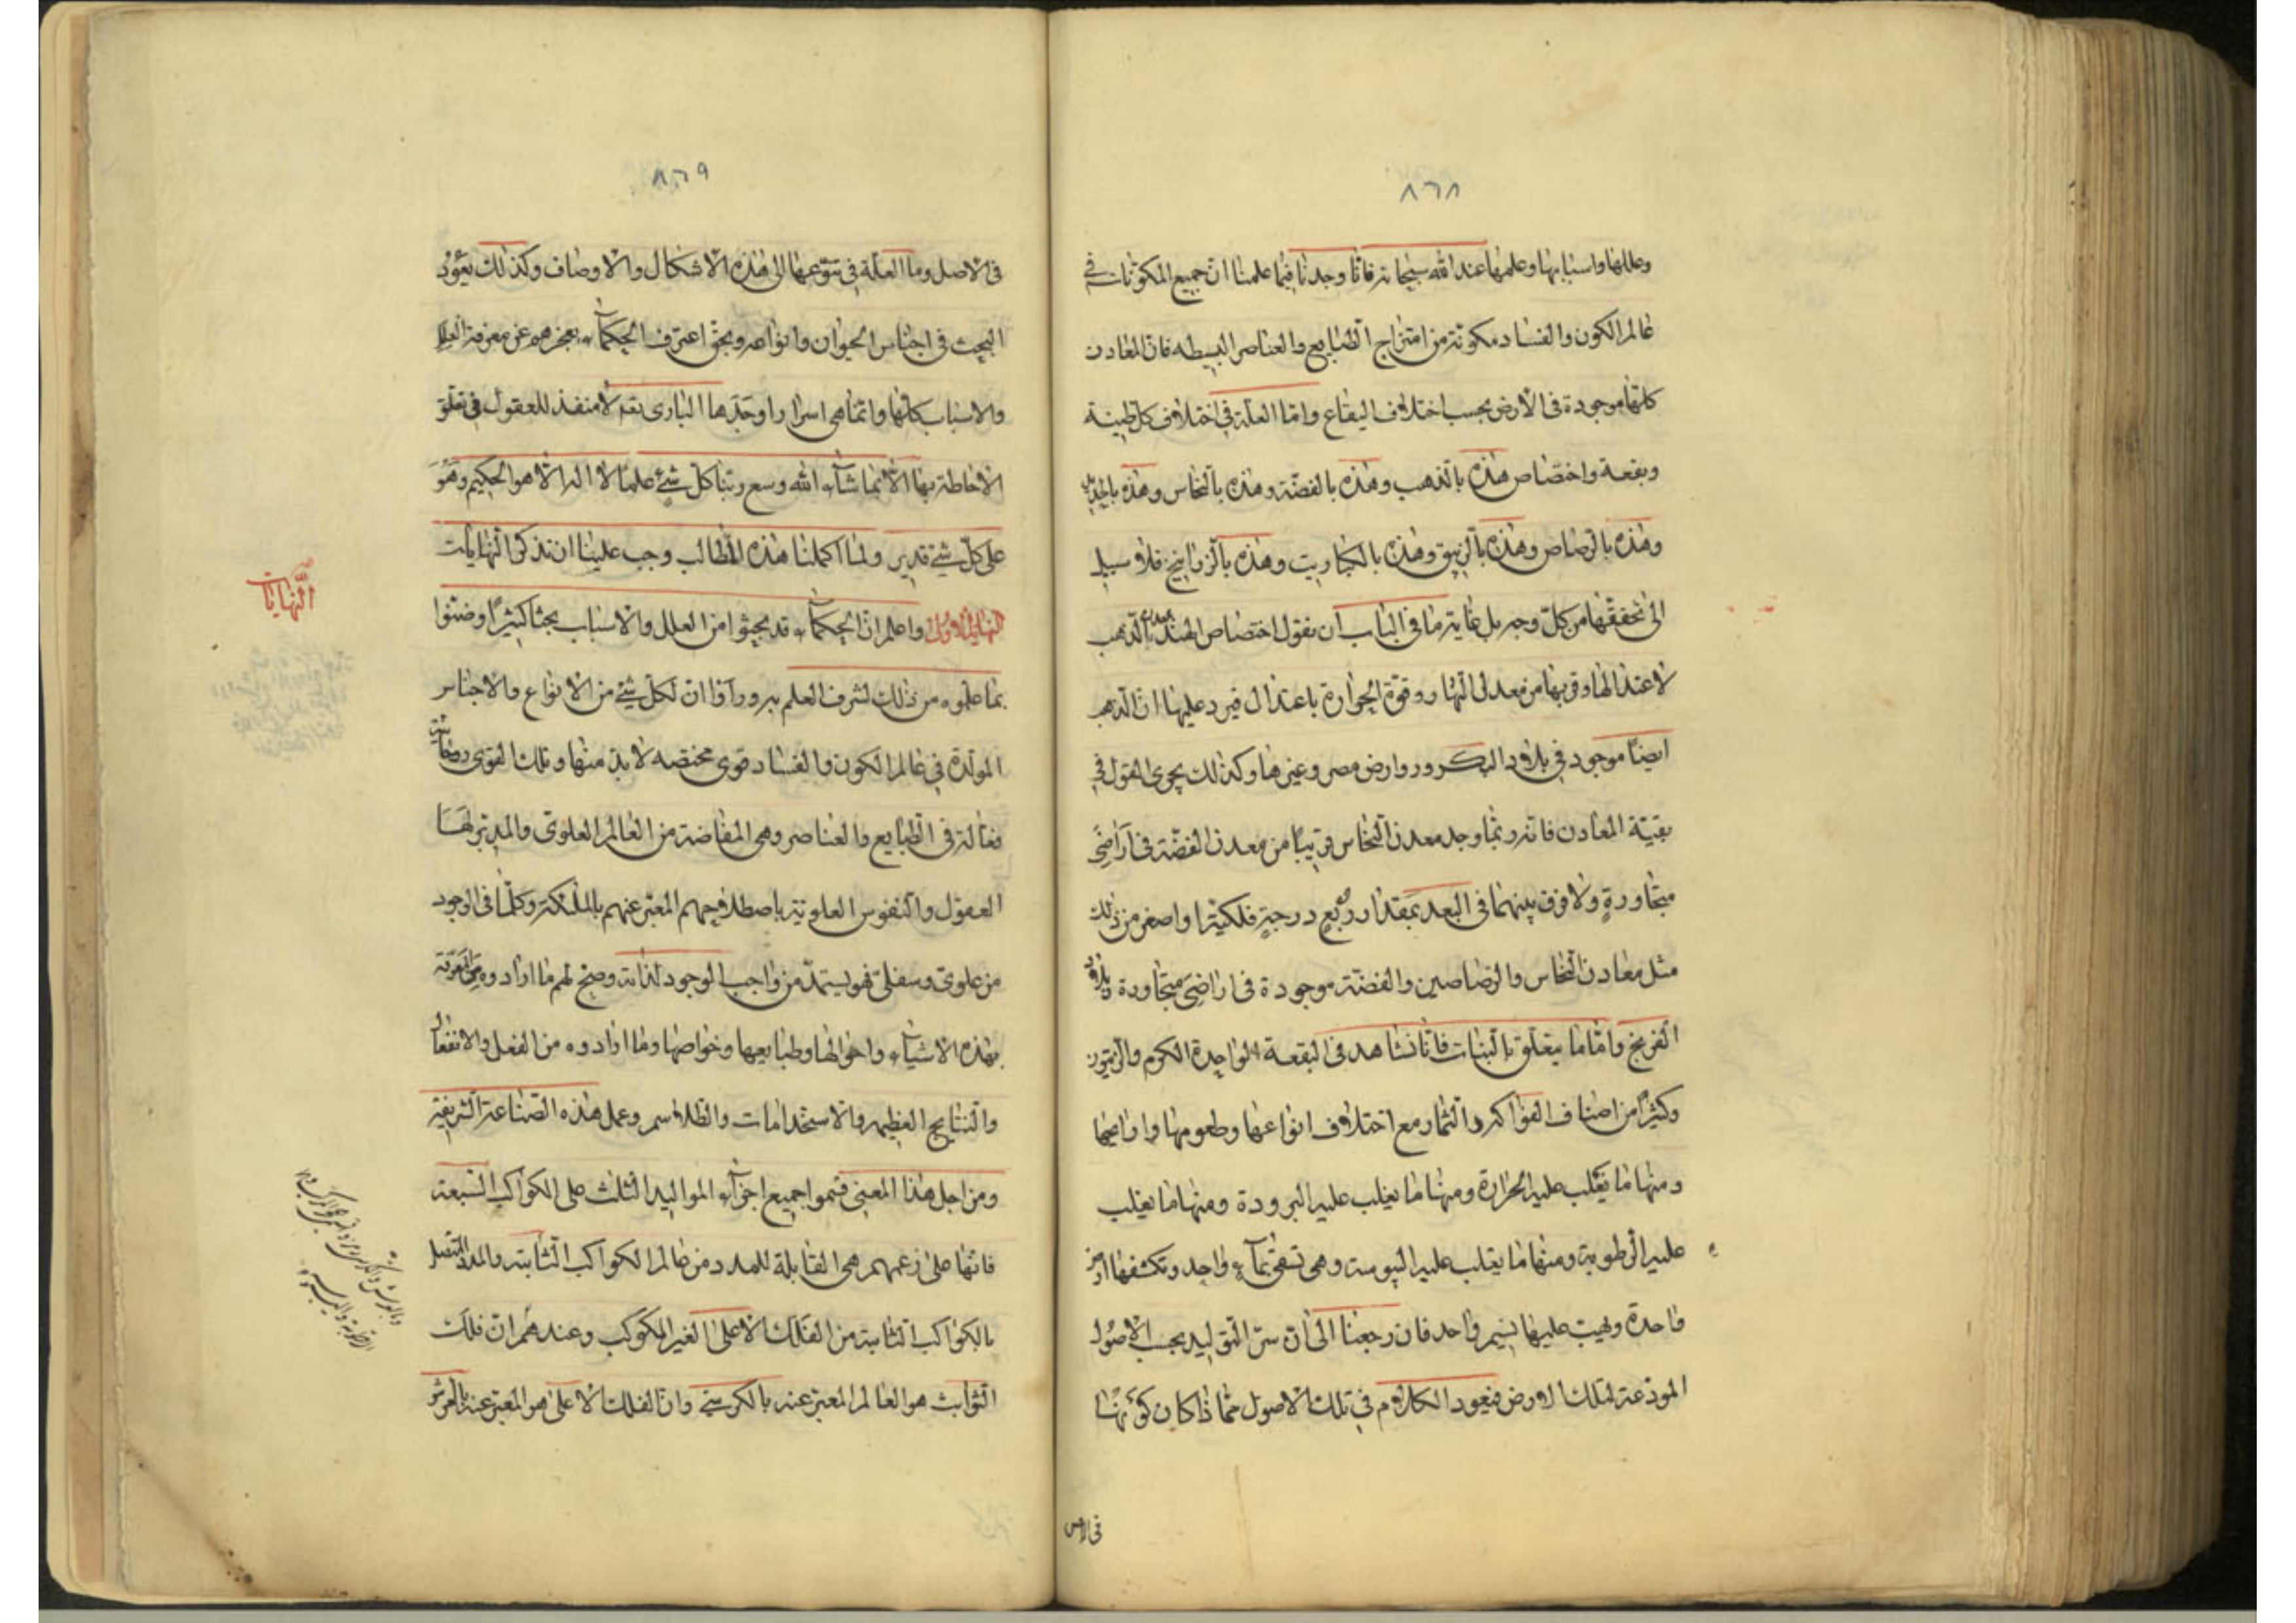 ٨٦٨
وعللها واسبابها وعلمها عند الله سبحانه فاننا وجدنا فيما علمنا ان جميع المكونات في
عالم الكون والفساد مكونة من امتزاج الطبايع والعناصر البسيطه فان المعادن
كلها موجودة في الارض بحسب اختلاف البقاع واما العلة في اختلاف كل طينة
وبقعة واختصاص هذه بالذهب وهذه بالفضة وهذه بالنحاس وهذه بالحديد
وهذه بالرصاص وهذه بالزيبق وهذه بالكباريت وهذه بالزرانيخ فلا سبيل
الى تحققها من كل وجه بل غاية ما في الباب ان نقول اختصاص الهند بمعدن الذهب
لاعتدالها وقربها من معدل النهار وقوة الحرارة باعتدال فيرد عليها ان الذهب
ايضا موجود في بلاد التكرور وارض مصر وغيرها وكذلك يجرى القول في
بقية المعادن فانه ربما وجد معدن النحاس قريبا من معدن الفضة في اراضى
متجاورة ولا فرق بينهما في البعد بمقدار ربع درجة فلكية او اصغر من ذلك
مثل معادن النحاس والرصاصين والفضة موجودة في اراضى متجاورة ببلاد
الفرنج واما ما يتعلق بالنبات فاننا نشاهد في البقعة الواحدة الكرم والزيتون
وكثيرا من اصناف الفواكه والثمار مع اختلاف انواعها وطعومها واراضيها
ومنها ما يغلب عليه الحرارة ومنها ما يغلب عليه البرودة ومنها ما يغلب
عليه الرطوبة ومنها ما يغلب عليه اليبوسة وهى تسقى بماء واحد وتكتنفها ارض
واحدة ويهب عليها نسيم واحد فان رجعنا الى ان سر التوليد بحسب الاصول
المودعة لتلك الاوض فيعود الكلام في تلك الاصول مما ذا كان كونها
في الاصل
٨٦٩
في الاصل وما العلة في تنوعها الى هذه الاشكال والاوصاف وكذلك يعود
البحث في اجناس الحيوان وانواعه وبحق اعترف الحكماء بعجزهم عن معرفة العلل
والاسباب كلها وانما هى اسرار اوجدها البارى تعم لا منفذ للعقول في تعلق
الاحاطة بها الا بما شاء الله وسع ربنا كل شئ علما لا اله الا هو الحكيم وهو
على كل شئ قدير ولما اكملنا هذه المطالب وجب علينا ان نذكر النهايات
النهايات
النهاية الاولى واعلم ان الحكماء قد بحثوا من العلل والاسباب بحثا كثيرا وضنوا
بما علموه من ذلك لشرف العلم به وراوا ان لكل شئ من الانواع والاجناس
المولدة في عالم الكون والفساد قوى مختصه لا بد منها وتلك القوى روحانية
فعالة في الطبايع والعناصر وهى المفاضة من العالم العلوى والمدبر لها
العقول والنفوس العلوية باصطلاحهم المعبر عنهم بالملئكة وكلما في الوجود
من علوى وسفلى فهو يستمد من واجب الوجود لذاته وصح لهم ما ارادوه من المعرفة
بهذه الاشياء واحوالها وطبايعها وخواصها وما ارادوه من الفعل والانفعال
والنتايج العظيمه والاستخدامات والطلاسم وعمل هذه الصناعة الشريفة
ومن اجل هذا المعنى قسموا جميع اجزاء المواليد الثلث على الكواكب السبعة
فانها على زعمهم هى القابلة للمدد من عالم الكواكب الثابتة والمدد المتصل
بالكواكب الثابتة من الفلك الاعلى الغير المكوكب وعندهم ان فلك
الثوابت هو العالم المعبر عنه بالكرسى وان الفلك الاعلى هو المعبر عنه بالعرش